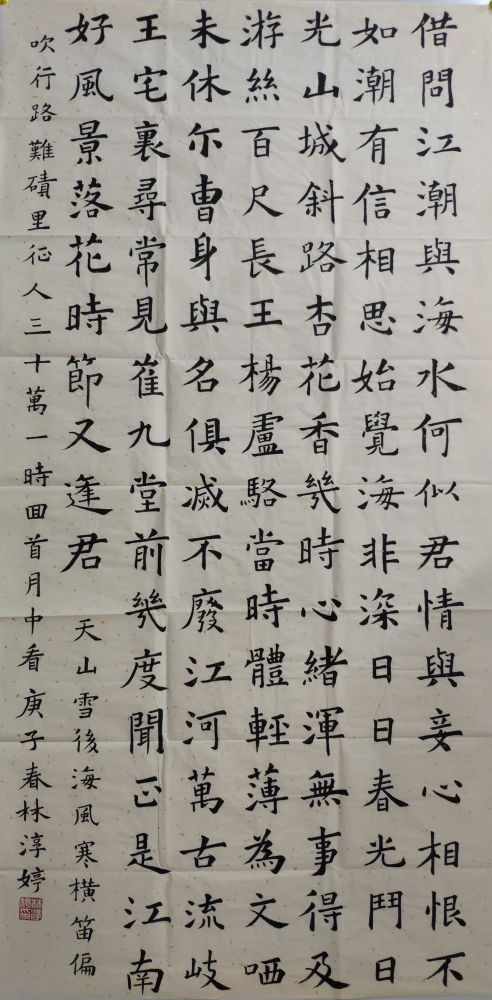 借問江潮與海水何似君情與妾心相恨不
如潮有信相思始覺海非深日日春光鬥日
光山城斜路杏花香幾時心緒渾無事得及
游絲百尺長王楊盧駱當時體輕薄為文哂
未休尔曹身與名俱滅不廢江河萬古流岐
王宅裏尋常見崔九堂前幾度聞正是江南
好風景落花時節又逢君
天山雪後海風寒橫笛偏
吹行路難磧里征人三十萬一時回首月中看庚子春林淳婷